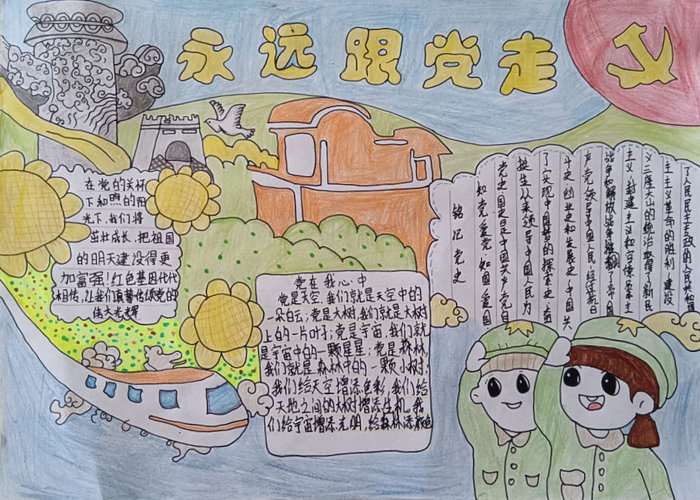 永远跟党走
在党的关怀
下和照的阳
光下，我们将
茁壮成长，把祖国
的明天建设得更
加富强！红色基因代代
相传，让我们真替传颂党的
伟大光辉
党在我心中
党是天空，我们就是天空中的
一朵白云；党是大树，我们就是大树
上的一片叶子；党是宇宙，我们就
是宇宙中的一颗星星；党是森林，
我们就是森林中的一颗小树！
我们给天空增添色彩，我们给
天地之间的大树增添生机，我
们给宇宙增添光明，给森林添
铭记党史
知党爱党 知国爱国
党史国史是中国共产党自
诞生从来领导中国人民为
了实现中国梦的探索史、奋
斗史、创业史和发展史，中国共
产党领导中国人民，经
主义、封建主义和官僚资本主
义三座大山的统治，取得了新民
主主义革命的胜利，建设
了人民民主专政的